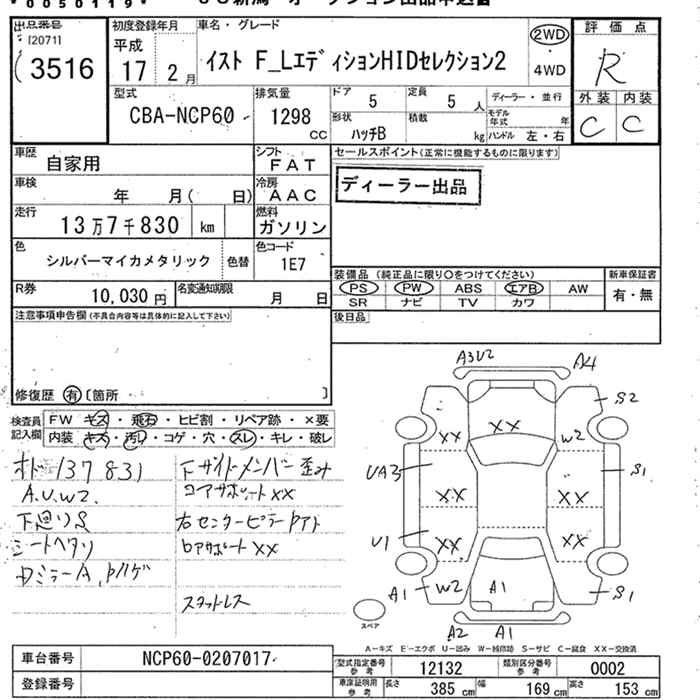 *0050119*
出品番号
[2071]
3516
初度登録年月
平成
17 2月
車名・グレード
イスト F_LエディションHIDセレクション2
2WD
4WD
評価点
R
型式
CBA-NCP60
排気量
1298
CC
ドア
5
定員
5 人
ディーラー・並行
モデル年式 年
外装 内装
C C
形状
ハッチB
積載
kg
ハンドル 左・右
車歴
自家用
シフト
FAT
セールスポイント(正常に機能するものに限ります)
ディーラー出品
車検
年 月( 日)
冷房
AAC
走行
13万7千830 km
燃料
ガソリン
色
シルバーマイカメタリック
色替
色コード
1E7
装備品(純正品に限り○をつけてください)
新車保証書
PS PW ABS エアB AW
SR ナビ TV カワ
有・無
R券
10,030円
名変通知期限
月 日
後日品
注意事項申告欄(不具合内容等は具体的に記入して下さい)
修復歴 有 〔箇所 〕
検査員記入欄
FW キズ・飛石・ヒビ割・リペア跡・×要
内装 キズ・汚レ・コゲ・穴・スレ・キレ・破レ
オド 137831
A.U.W2.
下廻りS
シートヘタリ
下サイドメンバー歪み
コアサポートXX
右センターピラー
スタットレス
A3U2
A4
S2
XX
XX
W2
UA3
XX
XX
S1
U1
XX
XX
A1
W2
A1
S1
A2
A1
スペア
A-キズ E-エクボ U-凹み W-補修跡 S-サビ C-腐食 XX-交換済
車台番号
NCP60-0207017
登録番号
型式指定番号
参考
12132
類別区分番号
参考
0002
車庫証明用
参考
長さ
385 cm
幅
169 cm
高さ
153 cm